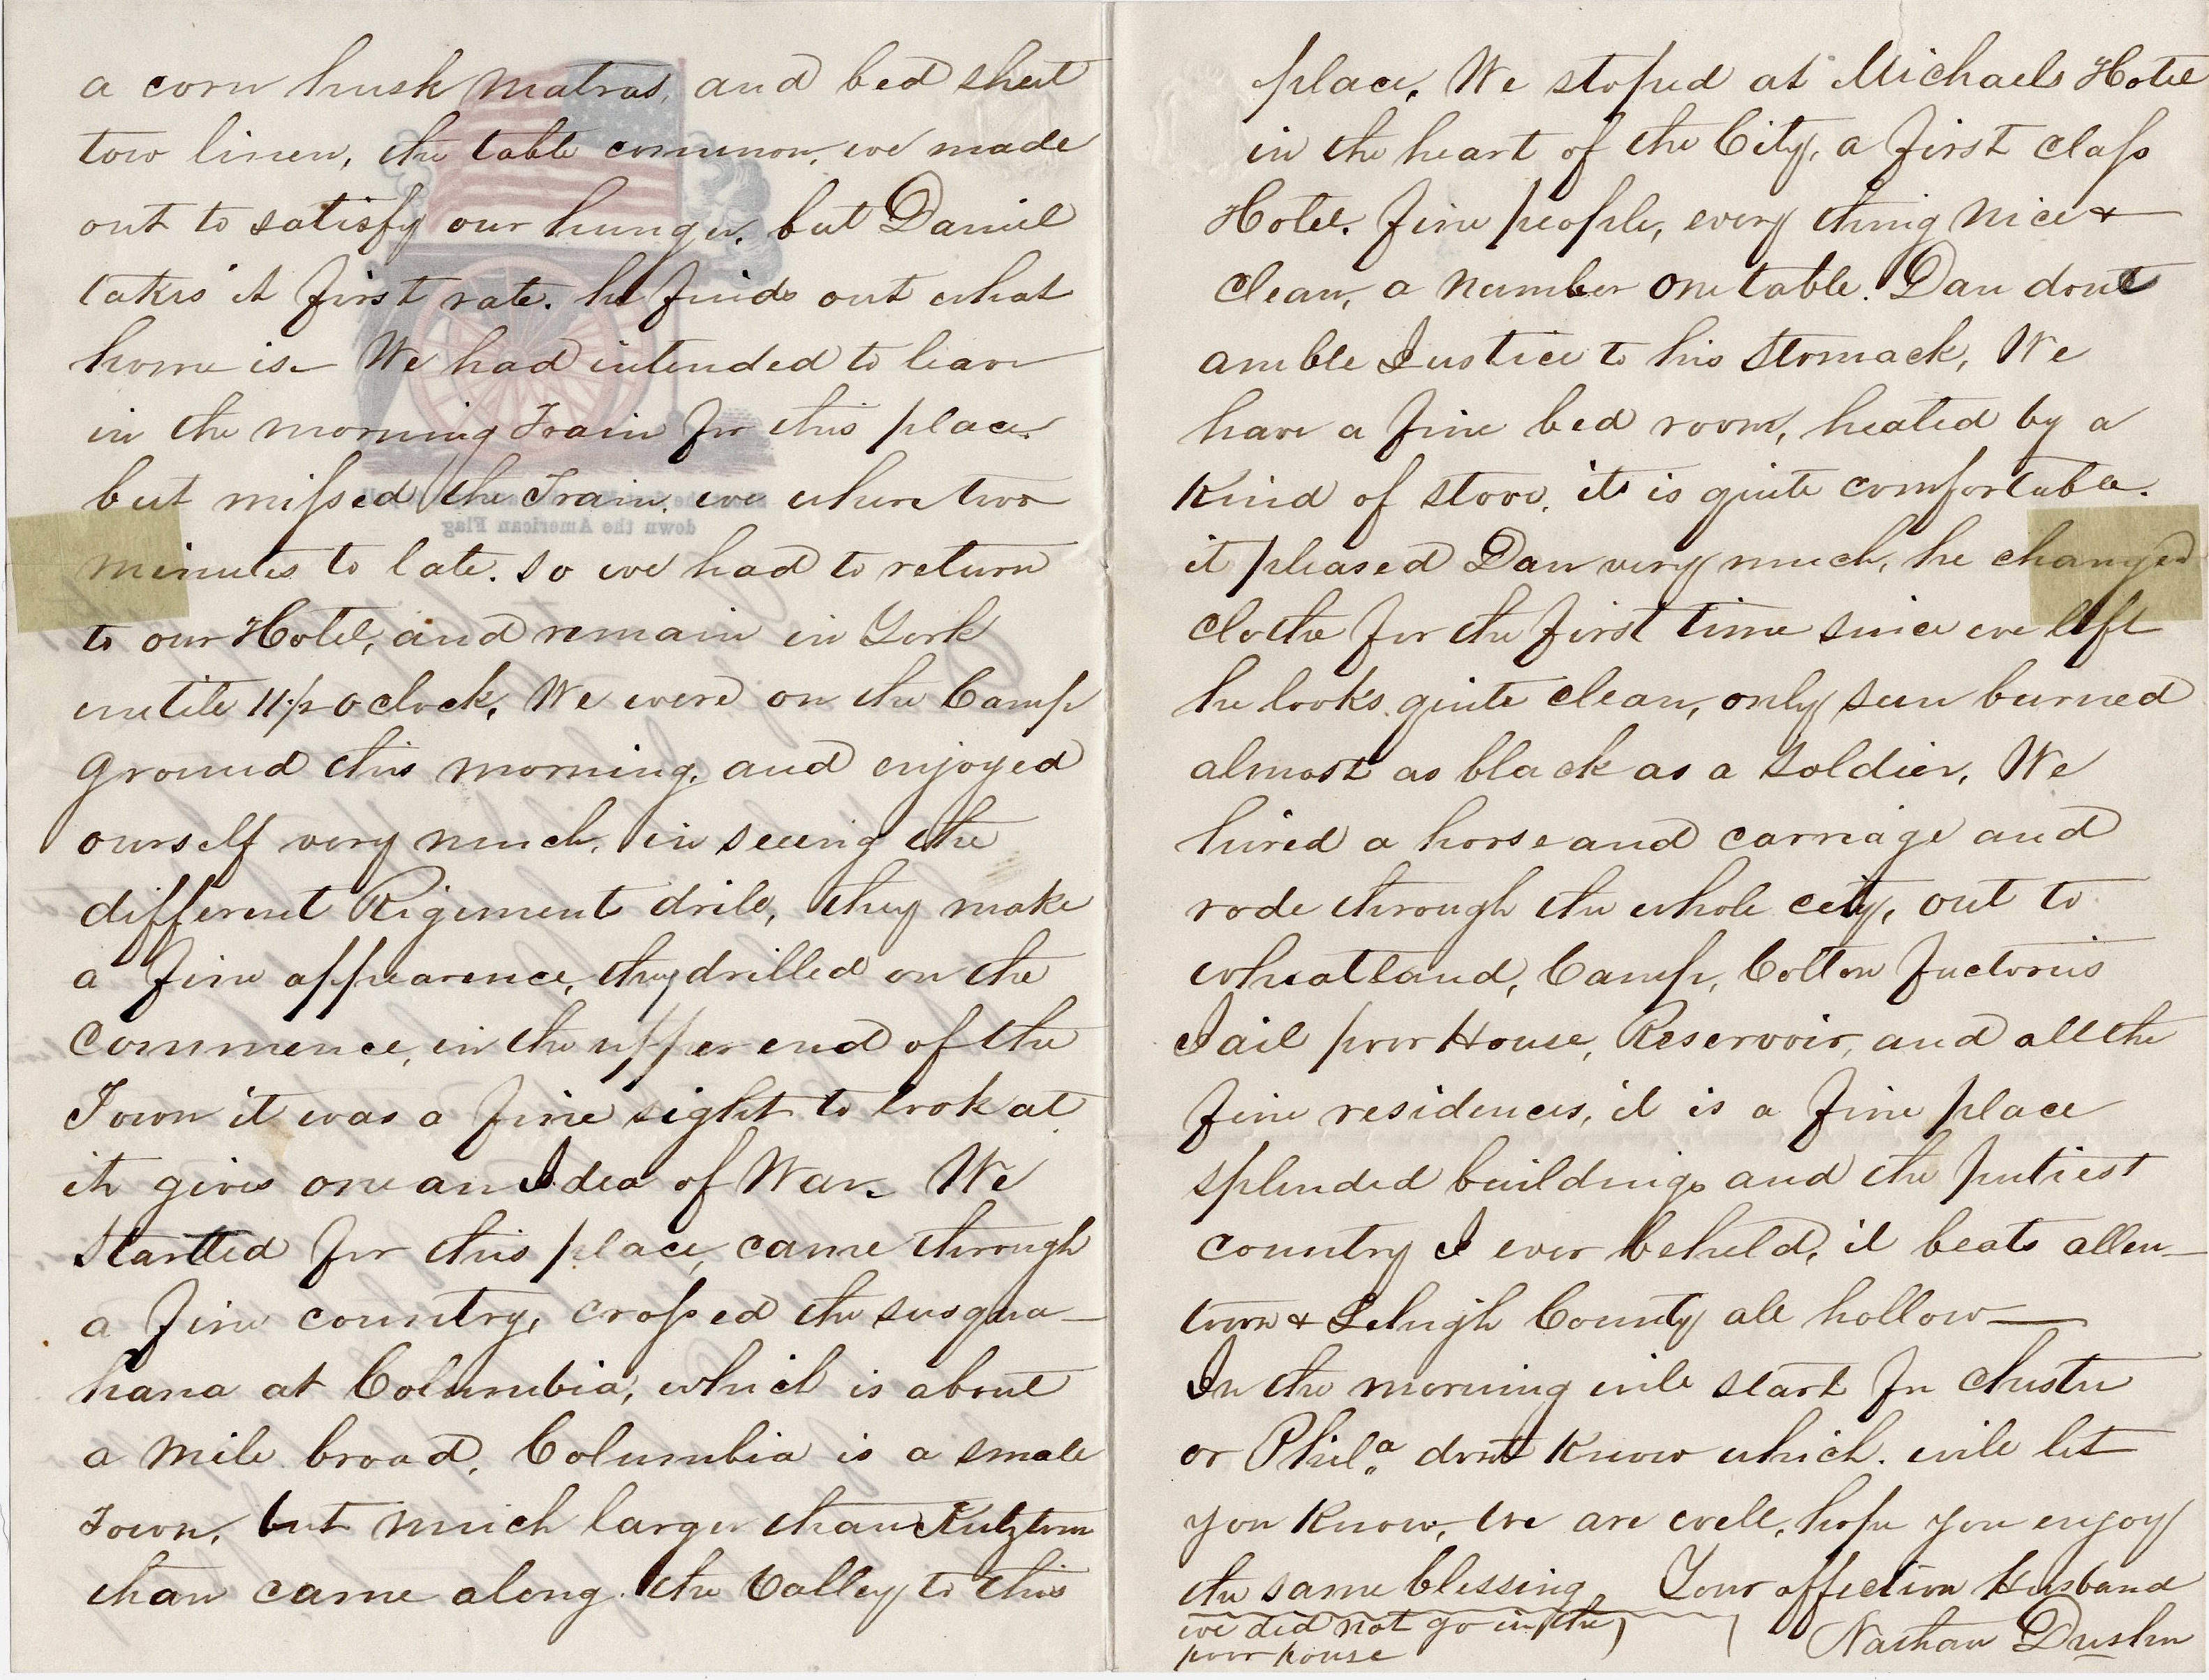 a corn husk matras, and bed sheet
tow linen, the table common, we made
out to satisfy our hunger. but Daniel
takes it first rate. he finds out what
home is— We had intended to leave
in the morning Train for this place.
but missed the Train. we where two
minutes to late. so we had to return
to our Hotel, and remain in York
untile 11½ Oclock, We were on the Camp
ground this morning, and enjoyed
ourself very much, in seeing the
different Rigements drill, they make
a fine appearence, they drilled on the
Commence, in the upper end of the
Town it was a fine sight to look at
it gives one an Idea of War. We
Startted for this place, came through
a fine country, crossed the susqua—
hana at Columbia, which is about
a mile broad, Columbia is a smale
Town, but much larger than Kutztown
than came along the Valley to this
down the American Flag
place, We stoped at Michaels Hotel
in the heart of the City, a first class
Hotel. fine people, every thing nice &
clean, a number one table. Dan dont
amble Justice to his Stomack, We
have a fine bed room, heated by a
kind of stove. it is quite comfortable.
it pleased Dan very much, he changed
clothe for the first time since we left
he looks quite clean, only sun burned
almost as black as a soldier, We
hired a horse and carriage and
rode through the whole city, out to
Wheatland, Camp, Cotton Factoris
Jail poor House, Reservoir, and all the
fine residences, it is a fine place
splended buildings and the putiest
country I ever beheld, it beats allen—
town & Lehigh County all hollow—
In the morning will start for Chester
or Phil.a dont know which. will let
you know, we are well, hope you enjoy
the same blessing Your affection Husband
we did not go in the Nathan
poor house